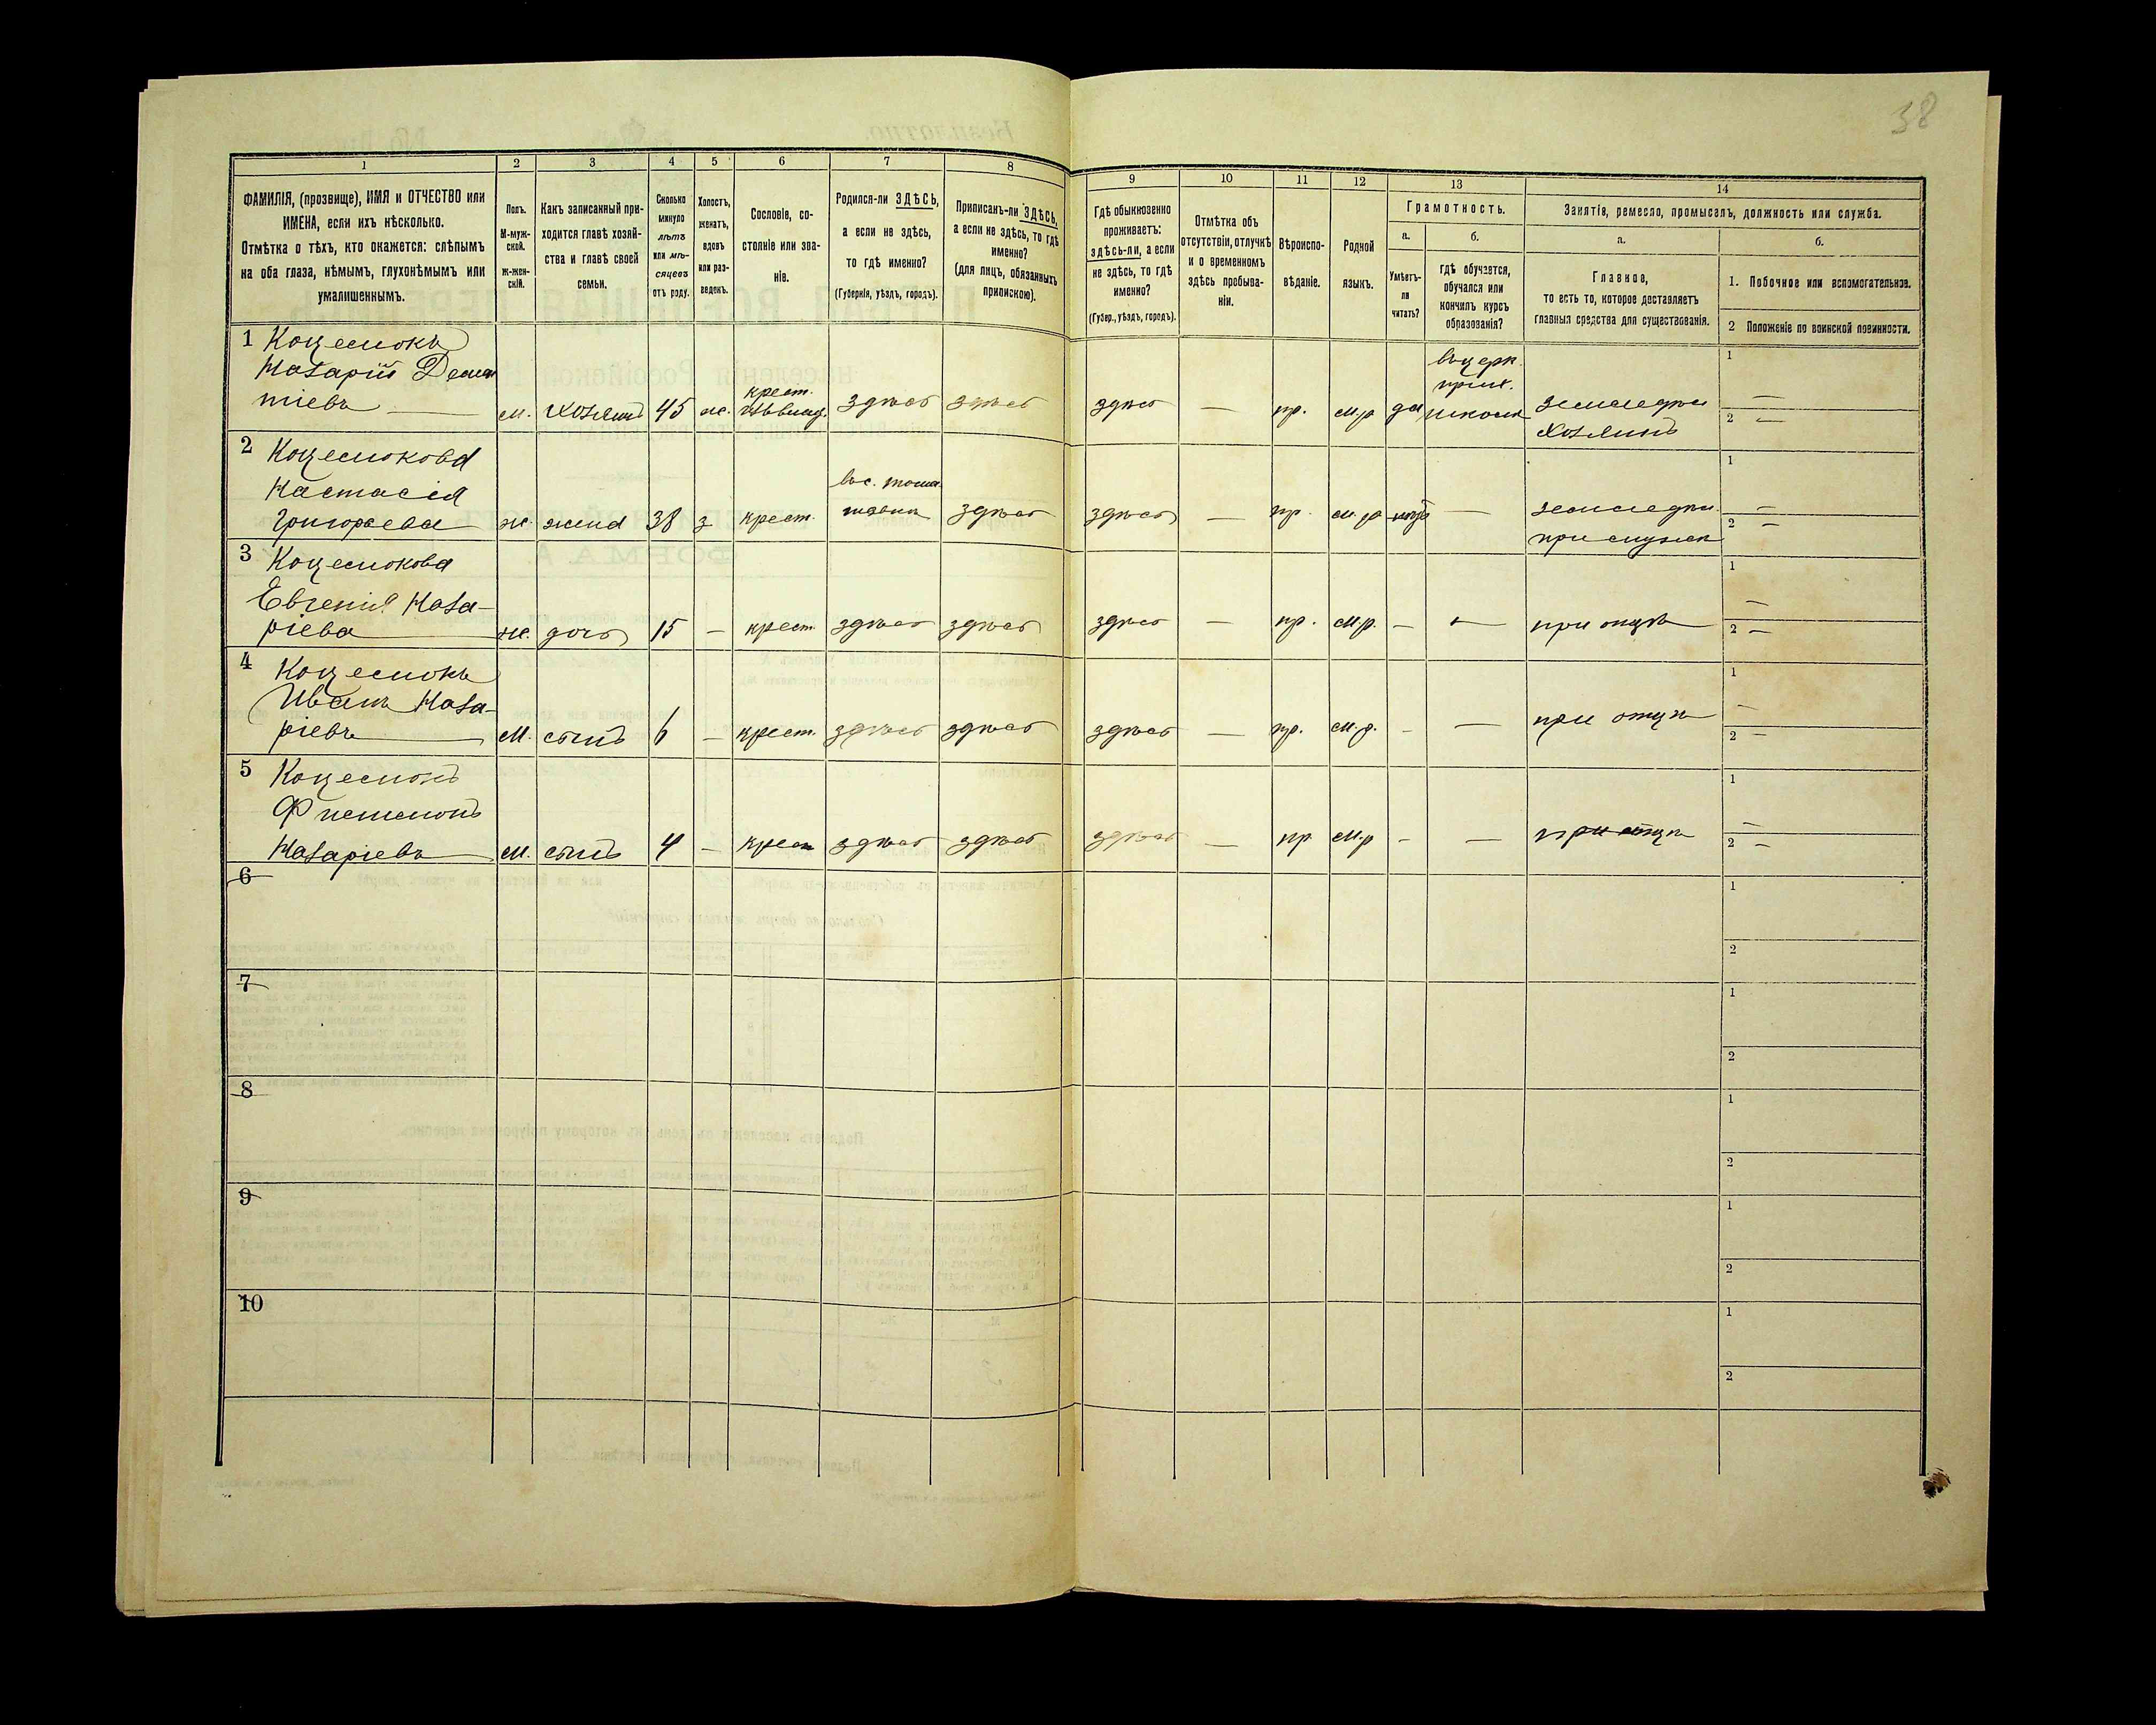 38
1 2 3 4 5 6 7 8 9 10 11 12 13 14
ФАМИЛІЯ, (прозвище), ИМЯ и ОТЧЕСТВО или
ИМЕНА, если ихъ нѣсколько.
Отмѣтка о тѣхъ, кто окажется: слѣпымъ
на оба глаза, нѣмымъ, глухонѣмымъ или
умалишеннымъ.
Полъ.
М-муж-
ской.
ж-жен-
скій.
Какъ записанный при-
ходится главѣ хозяй-
ства и главѣ своей
семьи.
Сколько
минуло
лѣтъ
или мѣ-
сяцевъ
отъ роду.
Холостъ,
женатъ,
вдовъ
или раз-
веденъ.
Сословіе, со-
стояніе или зва-
ніе.
Родился-ли ЗДѢСЬ,
а если не здѣсь,
то гдѣ именно?
(Губернія, уѣздъ, городъ).
Приписанъ-ли ЗДѢСЬ,
а если не здѣсь, то гдѣ
именно?
(для лицъ, обязанныхъ
припискою).
Гдѣ обыкновенно
проживаетъ:
здѣсь-ли, а если
не здѣсь, то гдѣ
именно?
(Губер., уѣздъ, городъ).
Отмѣтка объ
отсутствіи, отлучкѣ
и о временномъ
здѣсь пребыва-
ніи.
Вѣроиспо-
вѣданіе.
Родной
языкъ.
Грамотность.
а.
Умѣетъ-
ли
читать?
б.
гдѣ обучается,
обучался или
кончилъ курсъ
образованія?
Занятія, ремесло, промыселъ, должность или служба.
а.
Главное,
то есть то, которое доставляетъ
главныя средства для существованія.
б.
1. Побочное или вспомогательное.
2 Положеніе по воинской повинности.
1
Назарій
м. хозяинъ 45 ж. крест. здѣсь здѣсь здѣсь — пр. м.р да
въ церк.
прих.
школѣ
хозяинъ
1 —
2 —
2
Григорьева ж. жена 38 з крест. здѣсь здѣсь — пр. м.р — 
1 —
2 —
3
Евгенія Наза-
ріева ж. дочь 15 — крест. здѣсь здѣсь здѣсь — пр. м.р. — — при отцѣ
1 —
2 —
4
Иванъ Наза-
ріевъ м. сынъ 6 — крест. здѣсь здѣсь здѣсь — пр. м.р. - — при отцѣ
1 —
2 —
5
Назаріевъ м. сынъ 4 — крест здѣсь здѣсь здѣсь — пр м.р - — при отцѣ
1 —
2 —
6 1
2
7 1
2
8 1
2
9 1
2
10 1
2